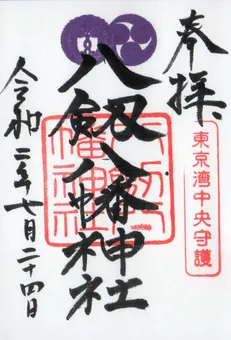 奉拝
東京湾中央守護
八剱八幡神社
令和二年七月二十四日